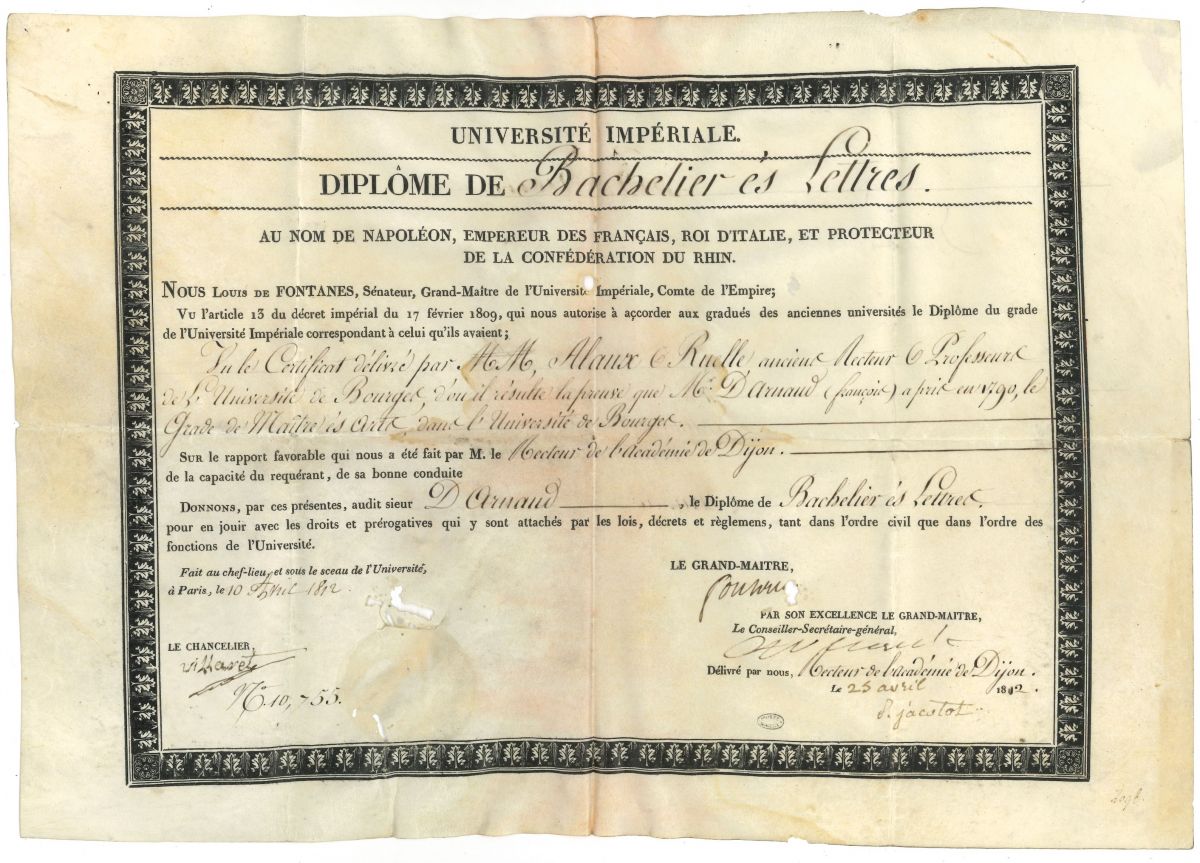 UNIVERSITÉ IMPÉRIALE.
DIPLÔME DE Bachelier ès Lettres.
AU NOM DE NAPOLÉON, EMPEREUR DES FRANÇAIS, ROI D'ITALIE, ET PROTECTEUR
DE LA CONFÉDÉRATION DU RHIN.
NOUS LOUIS DE FONTANES, Sénateur, Grand-Maître de l'Université Impériale, Comte de l'Empire;
VU l'article 13 du décret impérial du 17 février 1809, qui nous autorise à accorder aux gradués des anciennes universités le Diplôme du grade
de l'Université Impériale correspondant à celui qu'ils avaient;
Vu le Certificat délivré par MM. Alaux & Ruelle anciens Recteur & Professeurs
de l'Université de Bourges, d'où il résulte la preuve que Mr. D'Arnaud (françois) a pris en 1790, le
Grade de Maître ès Arts dans l'Université de Bourges.
SUR le rapport favorable qui nous a été fait par M. le Recteur de l'académie de Dijon.
de la capacité du requérant, de sa bonne conduite
DONNONS, par ces présentes, audit sieur D'Arnaud, le Diplôme de Bachelier ès Lettres.
pour en jouir avec les droits et prérogatives qui y sont attachés par les lois, décrets et règlemens, tant dans l'ordre civil que dans l'ordre des
fonctions de l'Université.
Fait au chef-lieu, et sous le sceau de l'Université,
à Paris, le 10 Avril 1812.
LE CHANCELIER,
Villaret
No. 10,755.
LE GRAND-MAITRE,
Fontanes
PAR SON EXCELLENCE LE GRAND-MAITRE,
Le Conseiller-Secrétaire-général,
Délivré par nous, Recteur de l'académie de Dijon.
LE 25 avril 1812.
P. jacotot